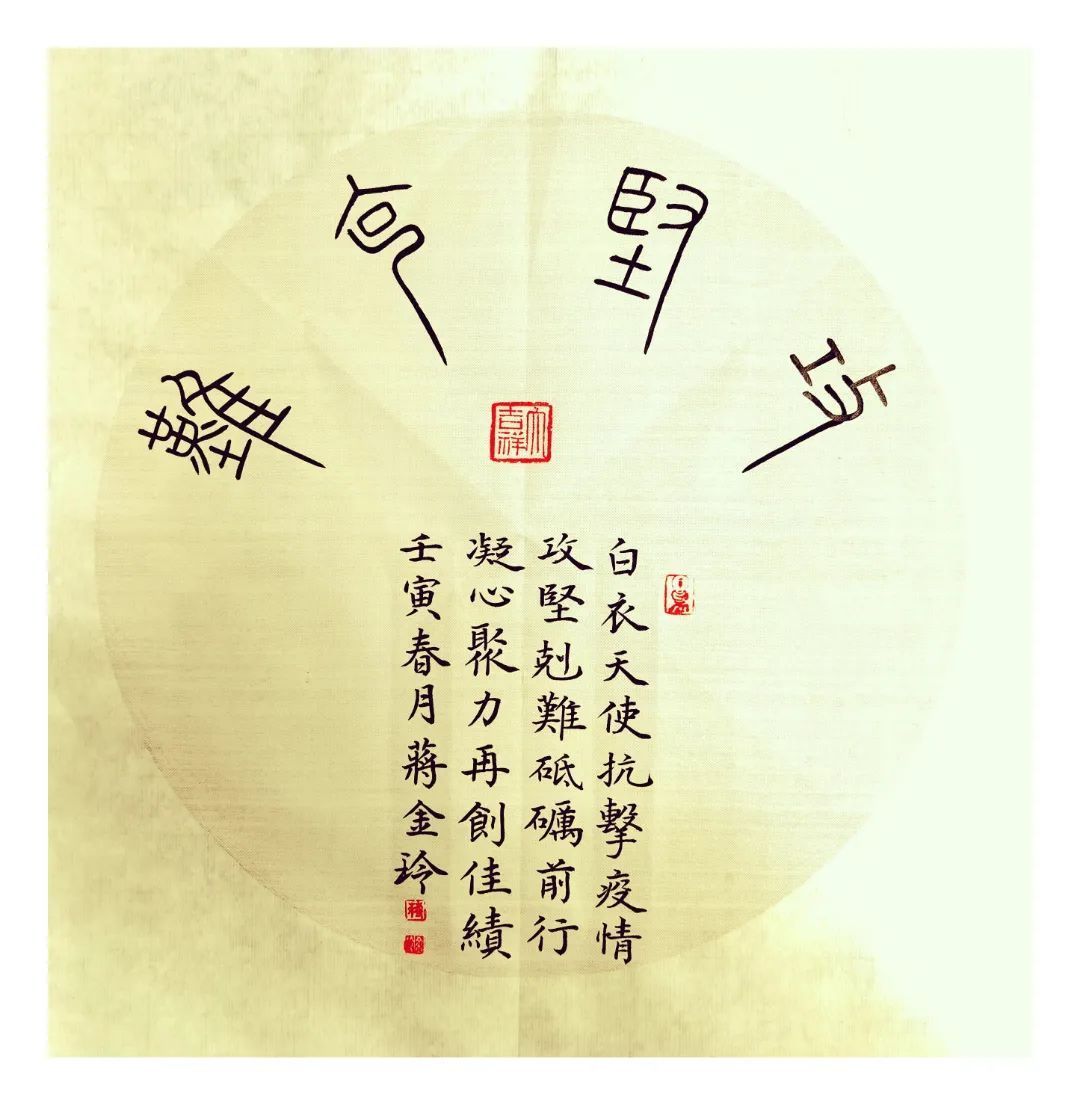 攻堅克難
大吉祥
白衣天使抗擊疫情
攻堅剋難砥礪前行
凝心聚力再創佳績
壬寅春月蔣金玲